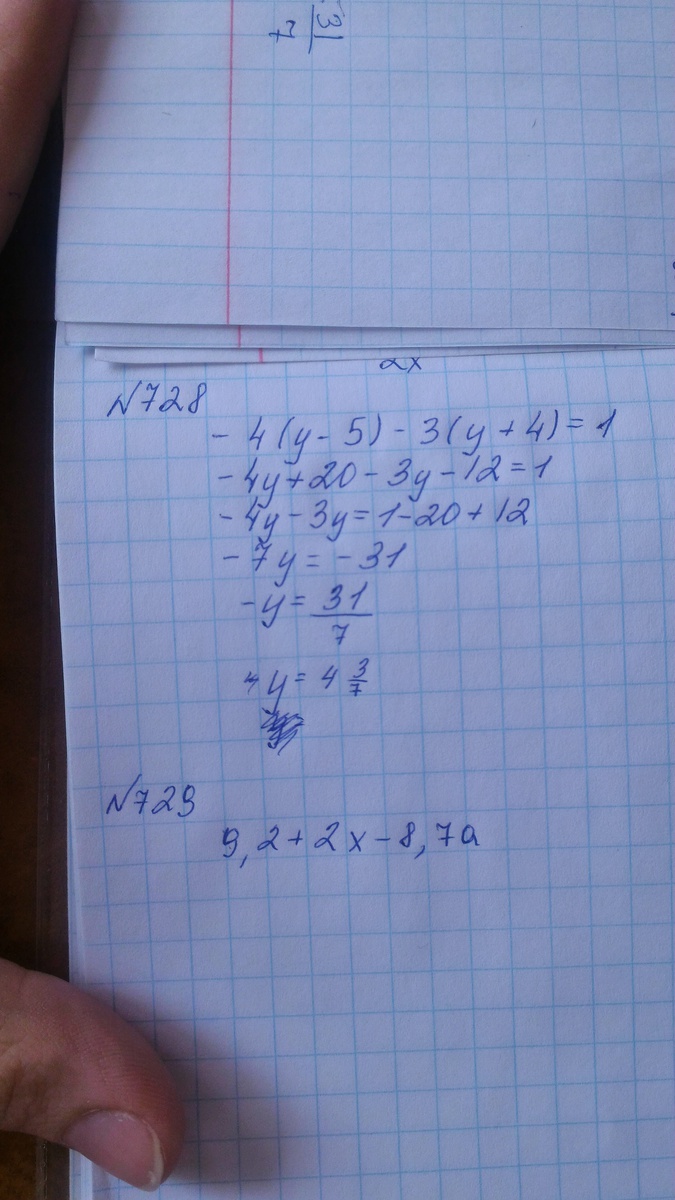 31
7
2x
№728
- 4(y - 5) - 3(y + 4) = 1
-4y + 20 - 3y - 12 = 1
-4y - 3y = 1 - 20 + 12
- 7y = - 31
-y = 31/7
y = 4 3/7
№729
9,2 + 2x - 8,7a